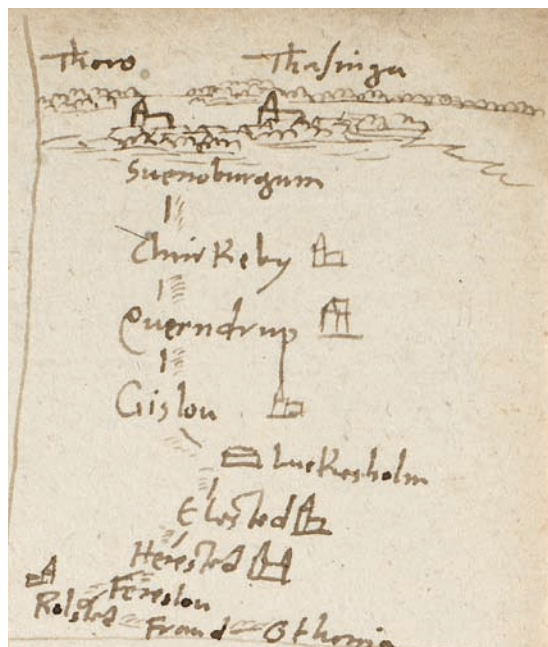 Thoro Thasinga
Suenoburgum
Chuirkeby
Querndrup
Gislou
Luckesholm
Elested
Herested
Fereslou
Rolsted Fraud Othonia